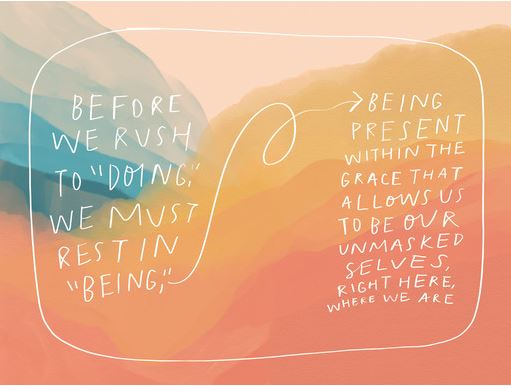 BEFORE
WE RUSH
TO "DOING,"
WE MUST
REST IN
"BEING,"
BEING
PRESENT
WITHIN THE
GRACE THAT
ALLOWS US
TO BE OUR
UNMASKED
SELVES,
RIGHT HERE,
WHERE WE ARE